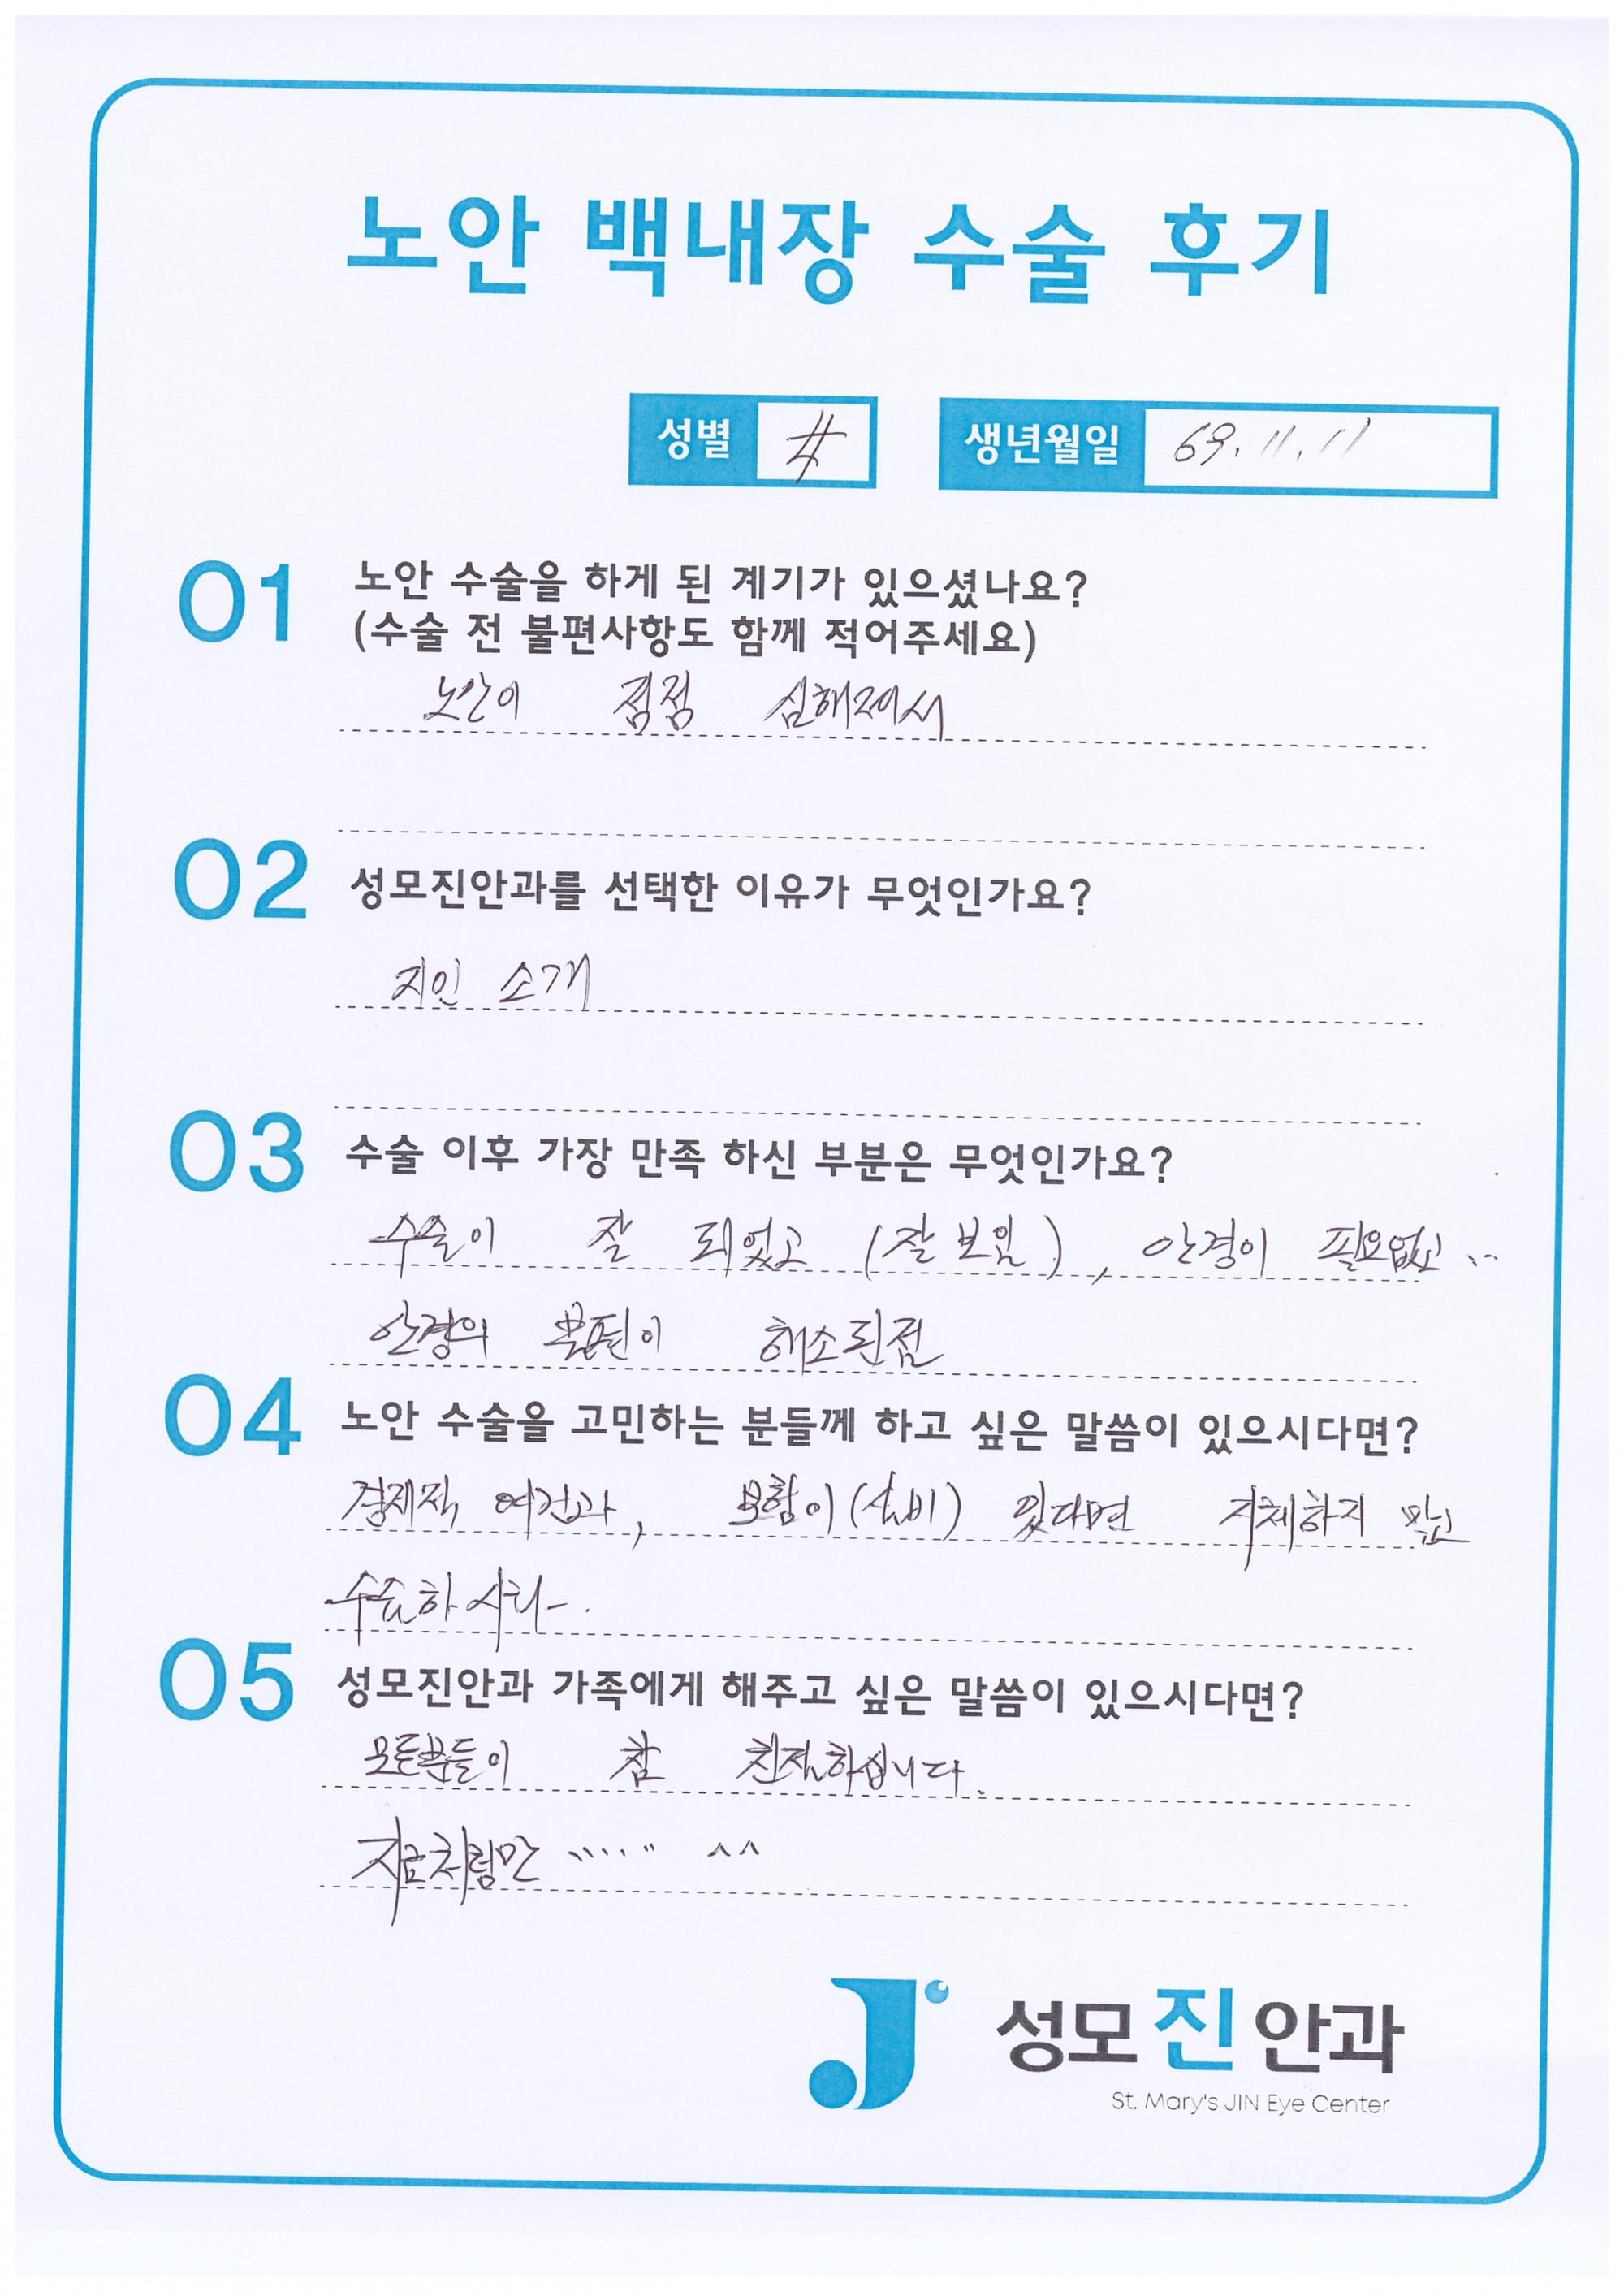 노안 백내장 수술 후기
성별 生년월일 69. 11. 11
01 노안 수술을 하게 된 계기가 있으셨나요?
(수술 전 불편사항도 함께 적어주세요)
노안이 점점 심해져서
02 성모진안과를 선택한 이유가 무엇인가요?
지인 소개
03 수술 이후 가장 만족 하신 부분은 무엇인가요?
수술이 잘 되었고 (잘 보임), 안경이 필요없고 ...
안경의 불편이 해소된점
04 노안 수술을 고민하는 분들께 하고 싶은 말씀이 있으시다면?
경제적 여건과, 보험이 (실비) 있다면 지체하지 말고
수술하시라-.
05 성모진안과 가족에게 해주고 싶은 말씀이 있으시다면?
모든분들이 참 친절하십니다.
지금처럼만 ...... ^^
성모진안과
St. Mary's JIN Eye Center